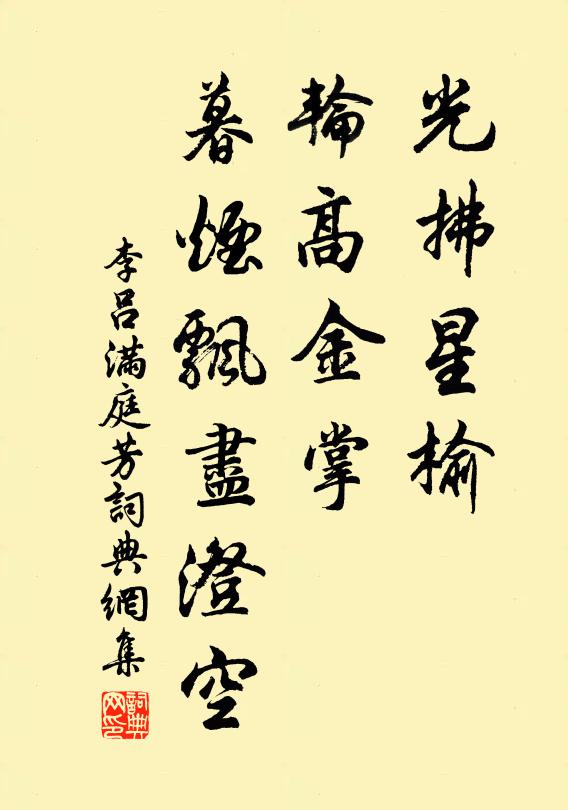 光拂星榆
輪高金掌
暮煙飄盡澄空
李呂滿庭芳詞典網集
詞典网印